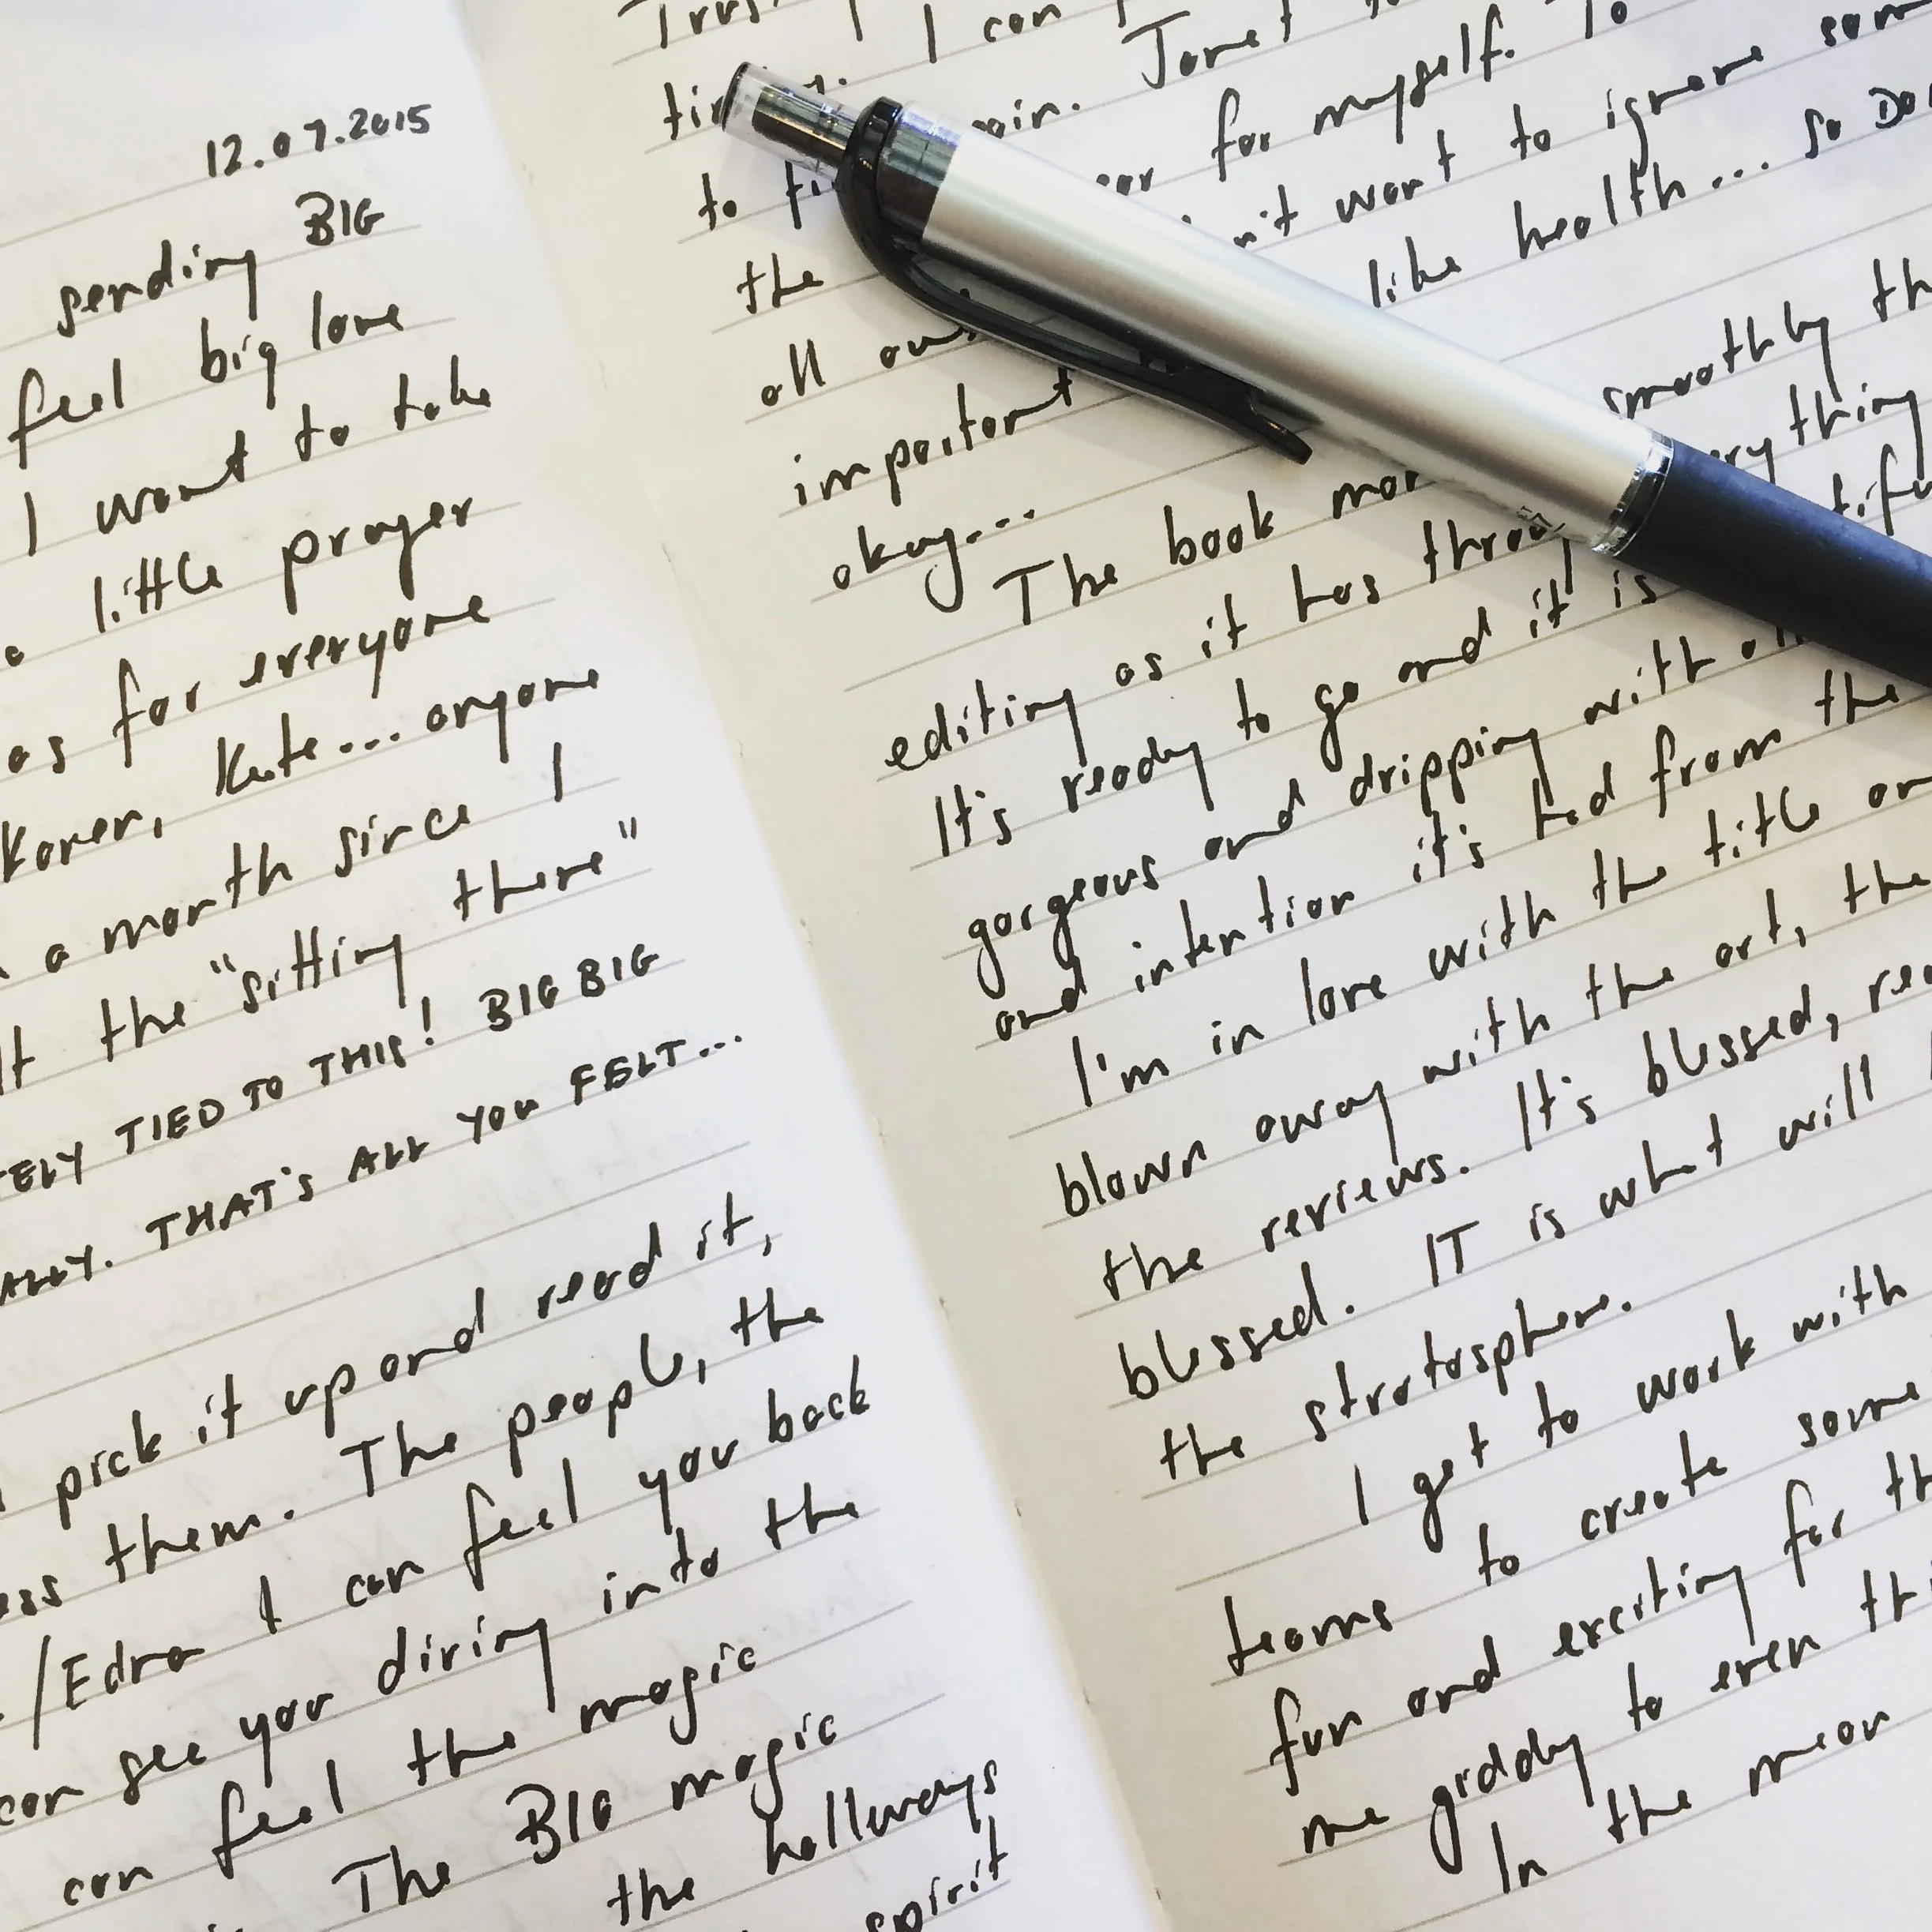 12.07.2015
sending BIG
feel big love
I want to take
a little prayer
as for everyone
Karen, Kate... anyone
a month since I
the "sitting there"
TIED TO THIS! BIG BIG
THAT'S ALL YOU FELT...
pick it up and read it,
them. The people, the
/Edna I can feel you back
can see you diving into the
can feel the magic
The BIG magic
the hallways
spirit
I can
Janet
to for myself. To
the want to ignore
all like health... so
important smoothly
okay...
The book
editing as it has
It's ready to go and it is
gorgeous and dripping with
and intention it's had from the
I'm in love with the title
blown away with the art, the
the reviews. It's blessed,
blessed. IT is what will
the stratosphere.
I get to work with
teams to create
fun and exciting for
me giddy to even
In the mean